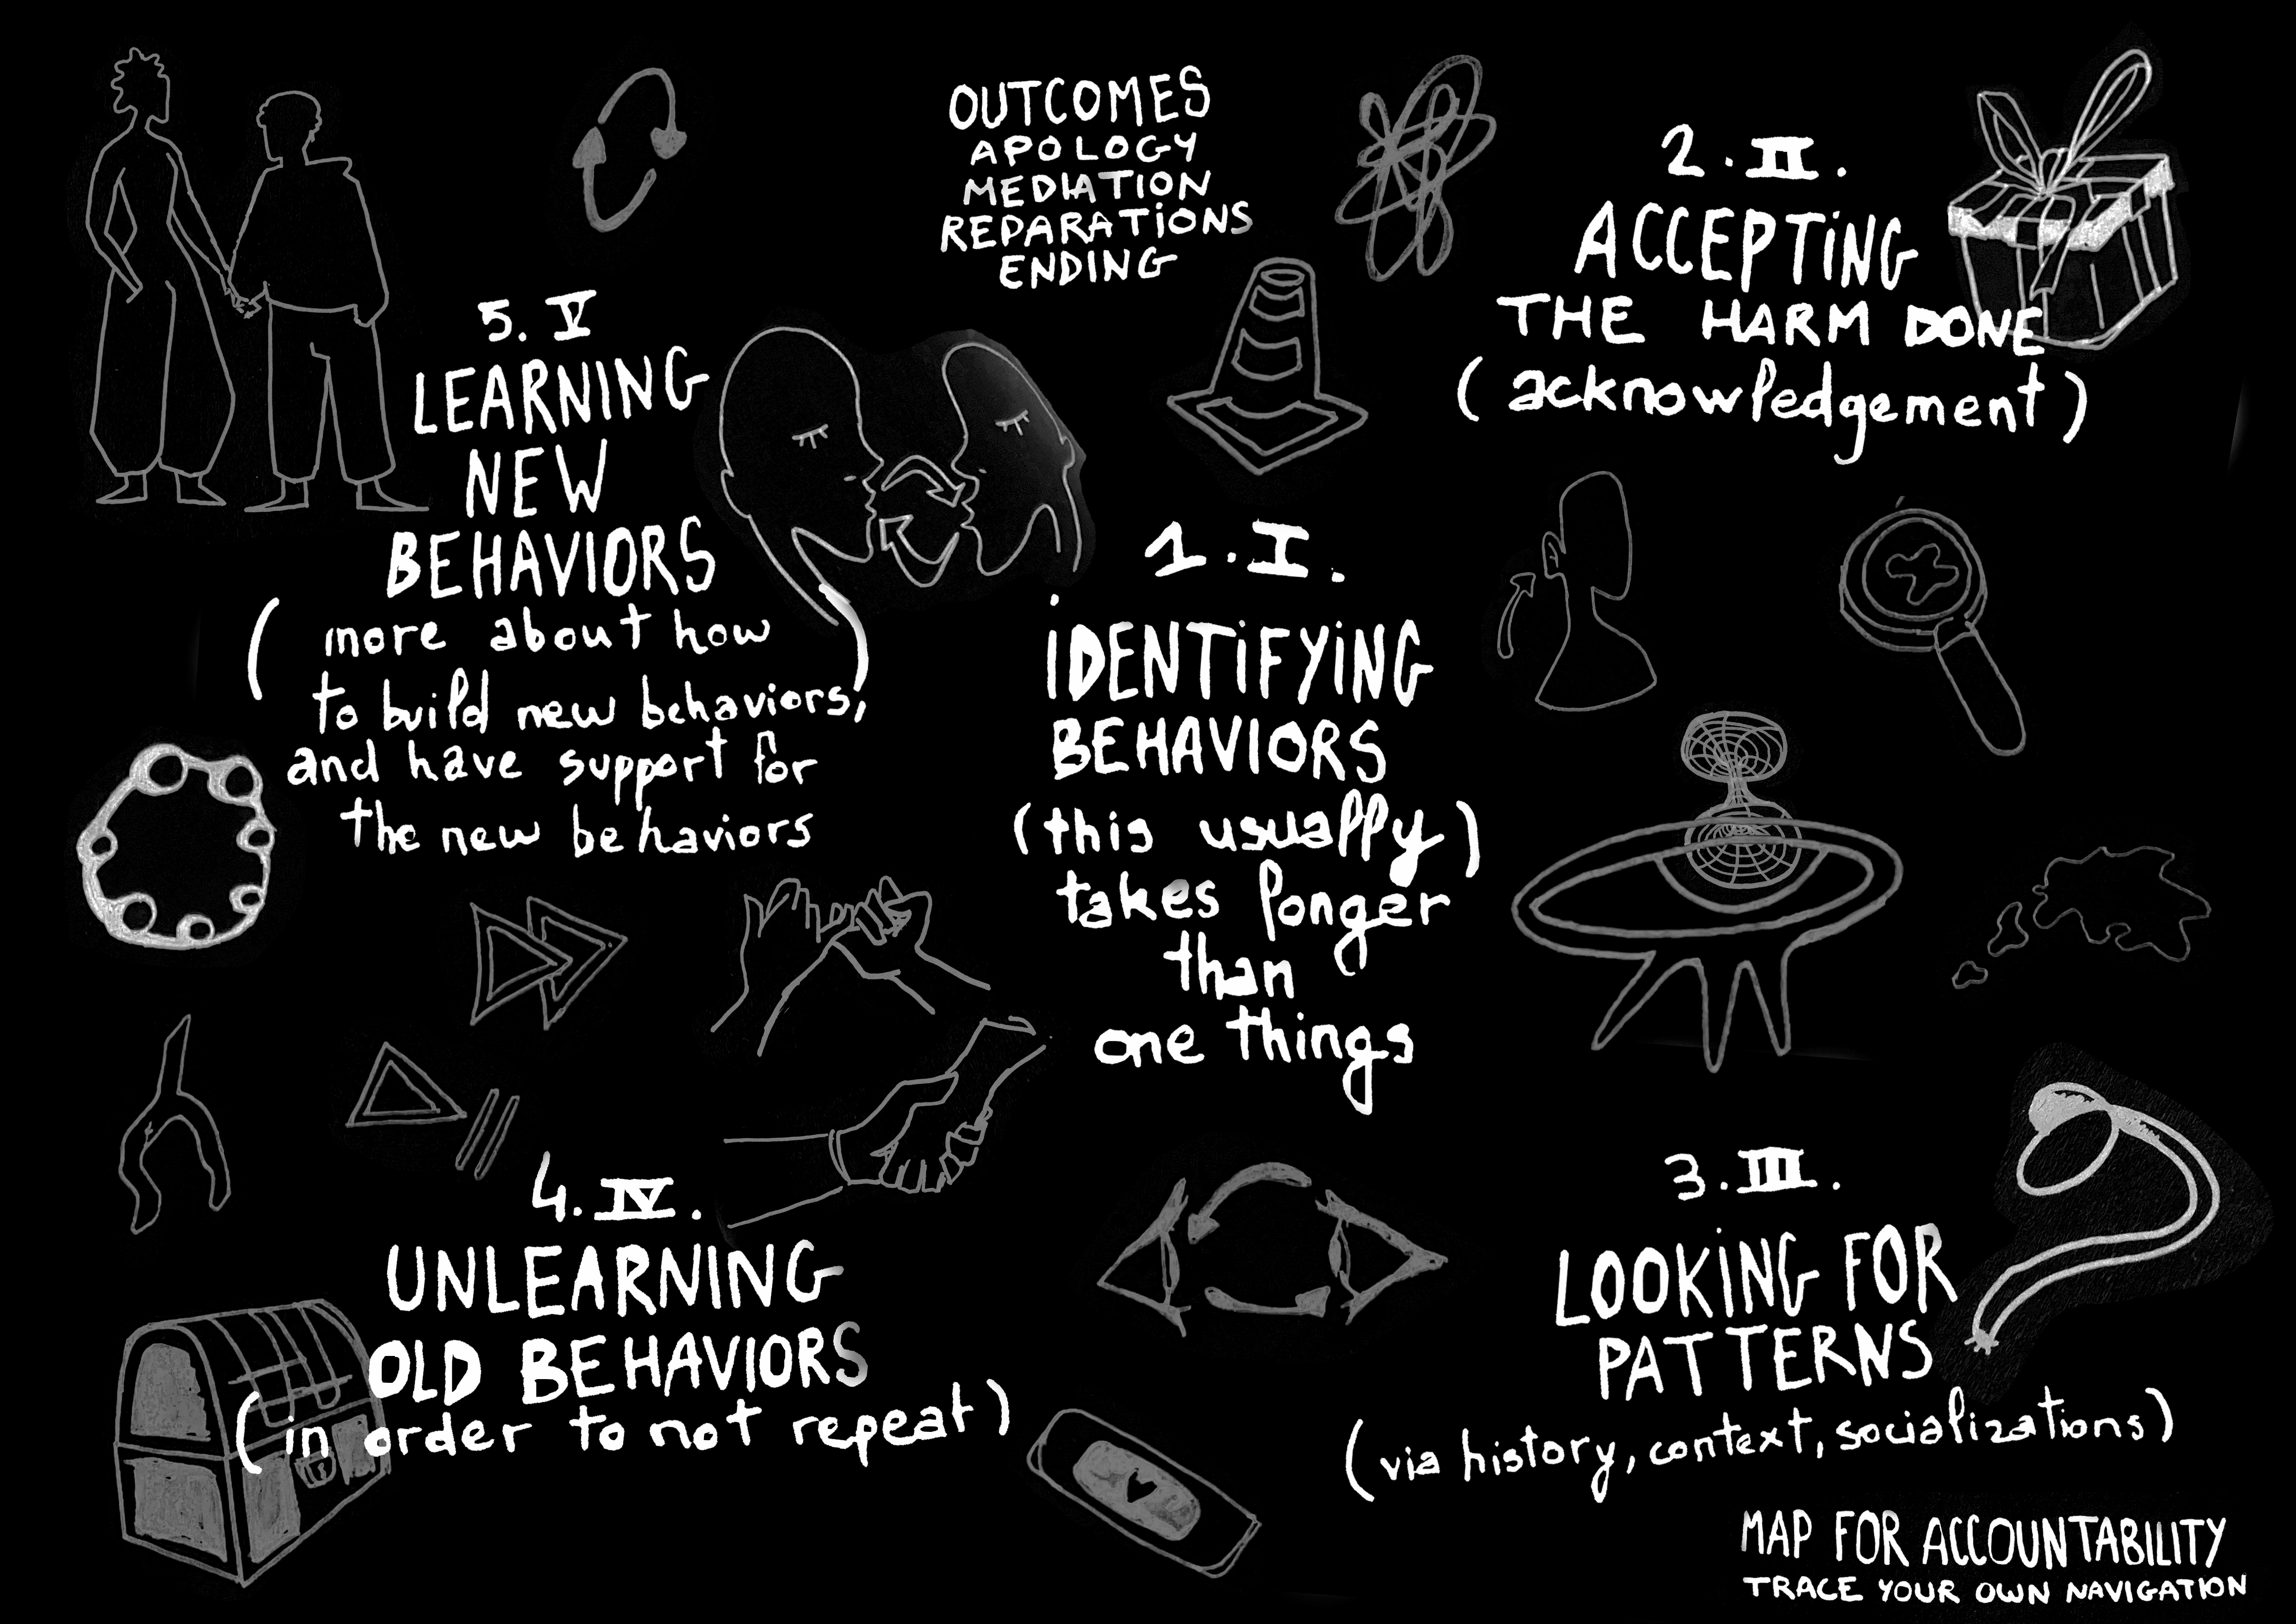 OUTCOMES
APOLOGY
MEDIATION
REPARATIONS
ENDING
1. I.
IDENTIFYING
BEHAVIORS
(this usually)
takes longer
than
one things
2. II.
ACCEPTING
THE HARM DONE
(acknowledgement)
3. III.
LOOKING FOR
PATTERNS
(via history, context, socializations)
4. IV.
UNLEARNING
OLD BEHAVIORS
(in order to not repeat)
5. V
LEARNING
NEW
BEHAVIORS
(more about how)
to build new behaviors,
and have support for
the new behaviors
MAP FOR ACCOUNTABILITY
TRACE YOUR OWN NAVIGATION